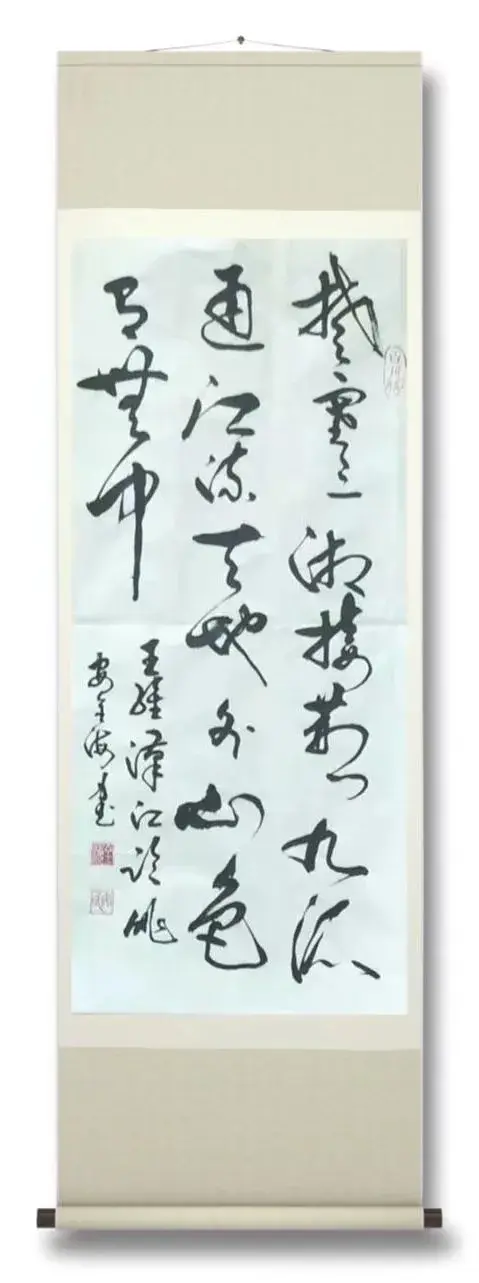 楚塞三湘接荆门九派
通江流天地外山色
有無中
王維漢江临眺
安海书